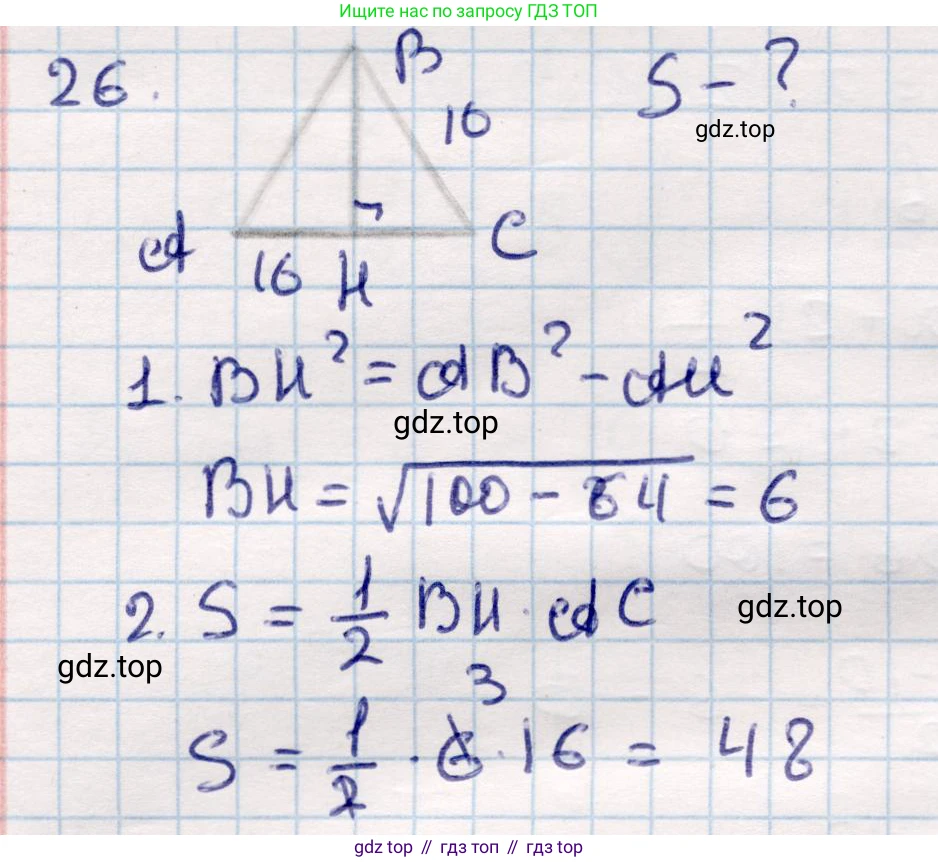 Ищите нас по запросу ГДЗ ТОП
26.
B
S - ?
10
gdz.top
A
C
16
H
1. BH² = AB² - AH²
gdz.top
BH = √100 - 64 = 6
2. S = 1/2 BH · AC
gdz.top
gdz.top
3
S = 1/2 · 6 · 16 = 48
gdz.top // гдз топ // гдз.top